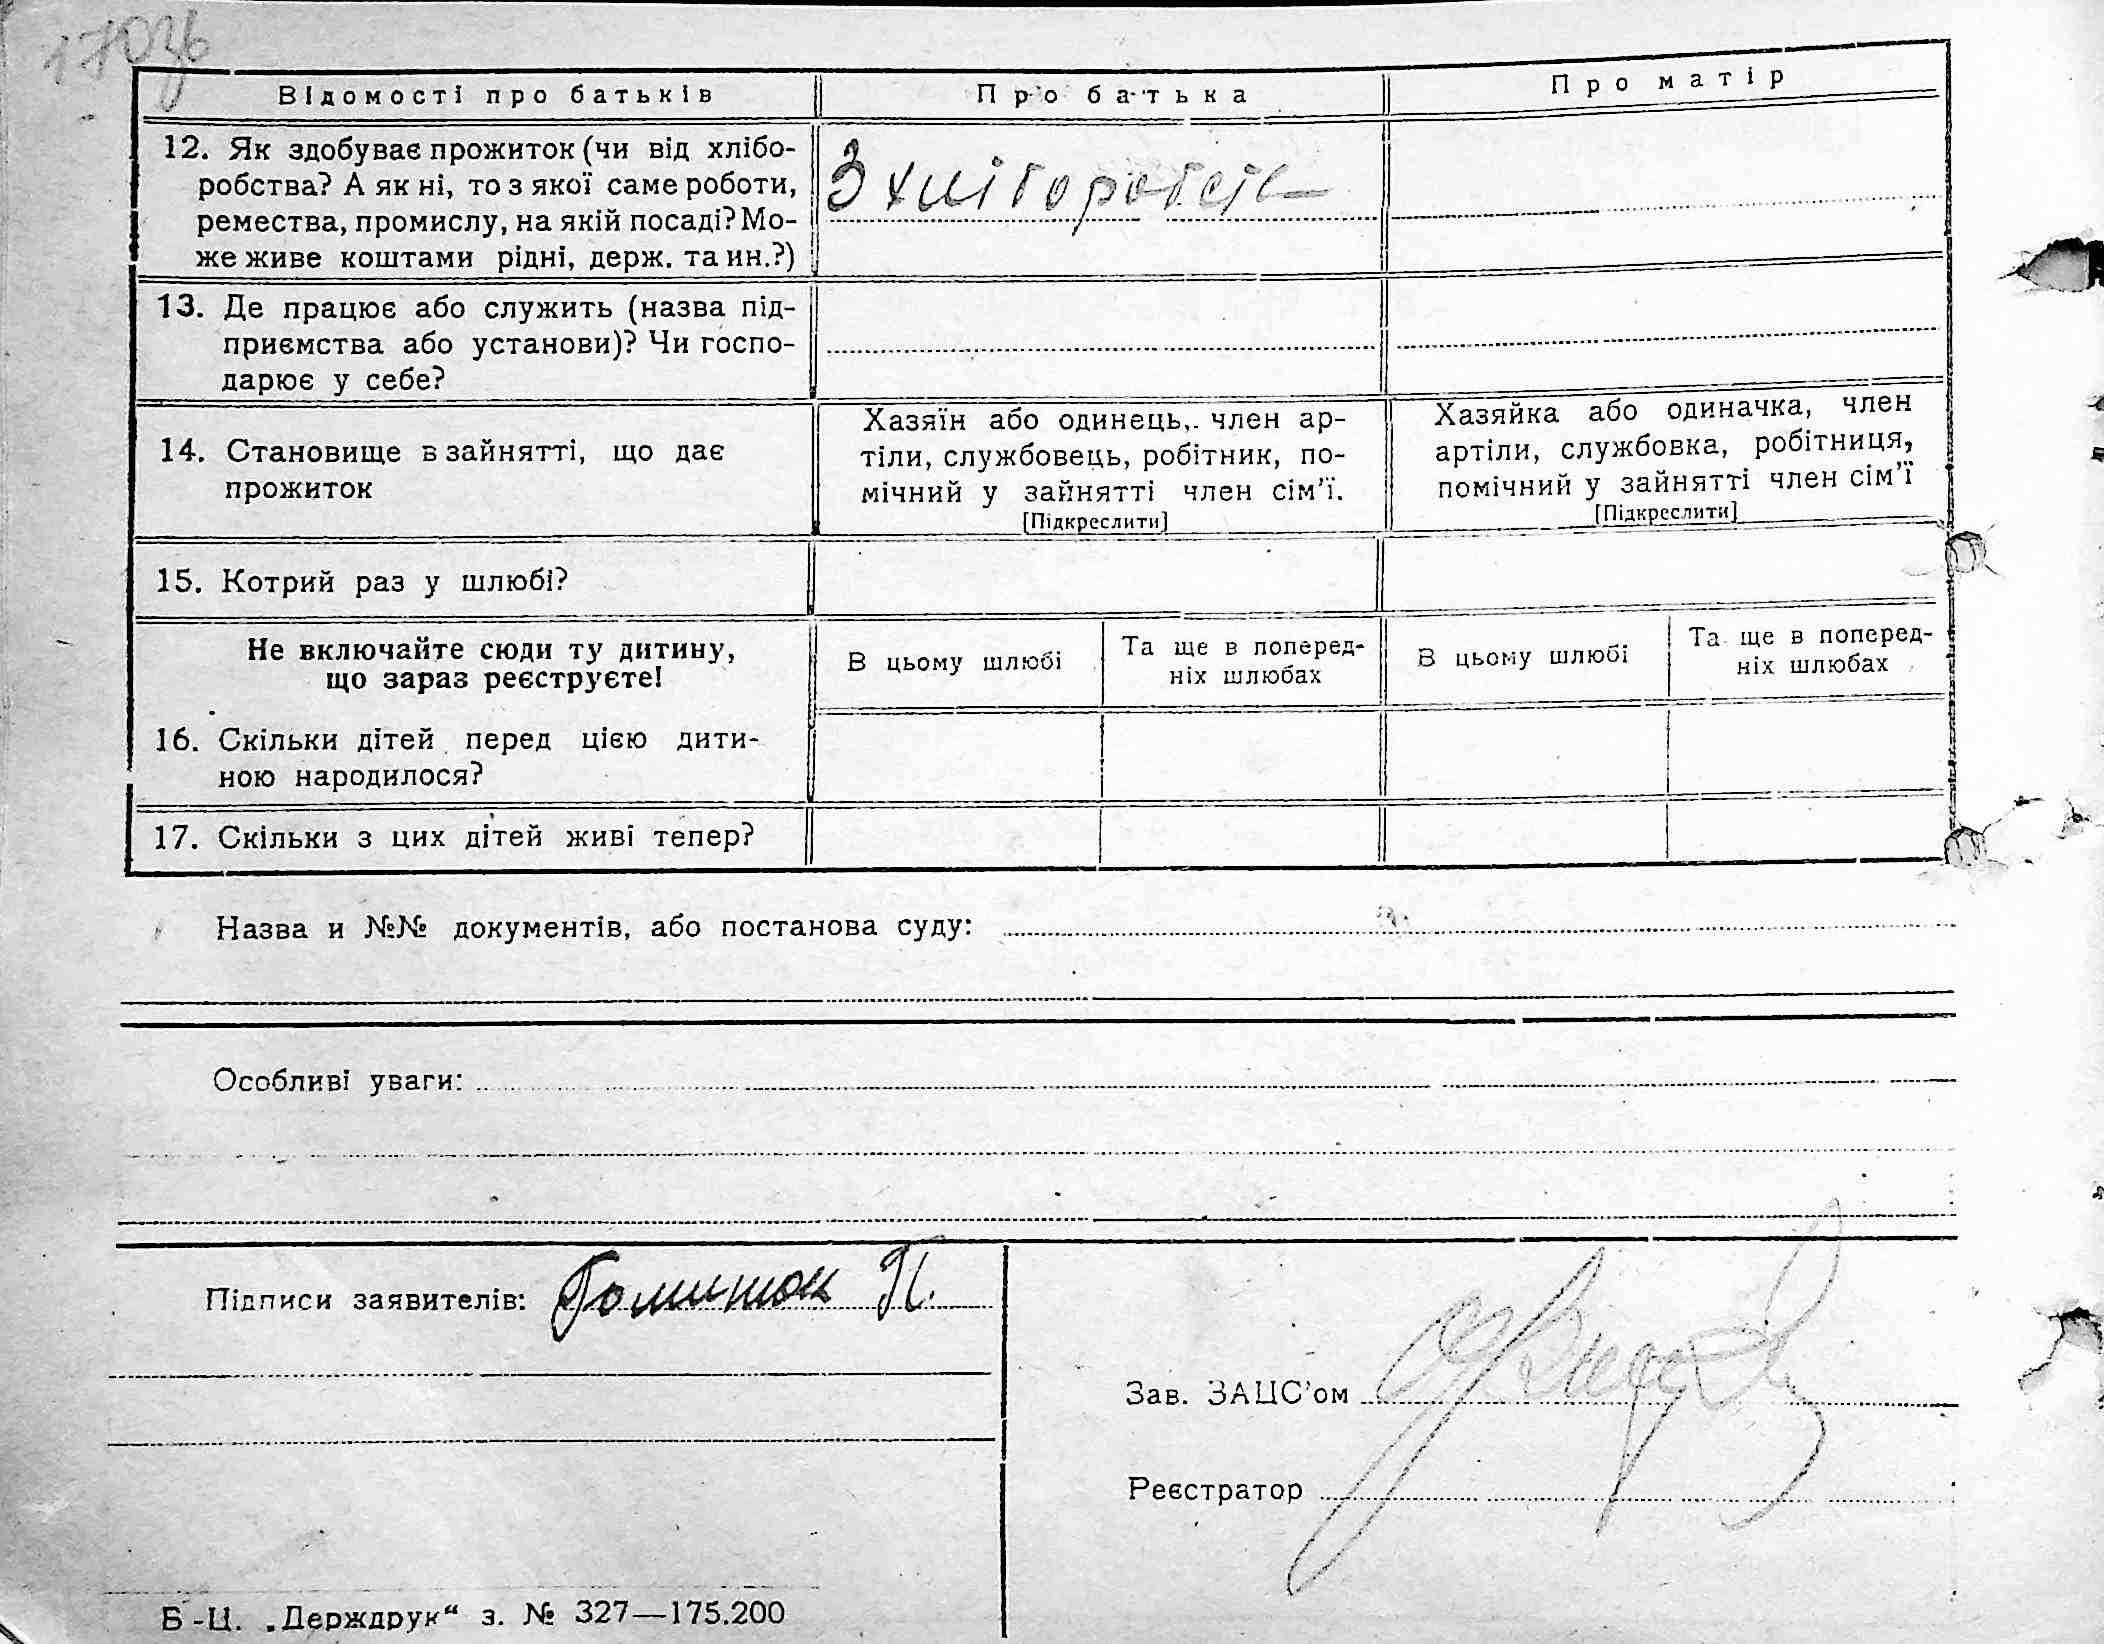 Відомості про батьків
Про батька
Про матір
12. Як здобуває прожиток (чи від хлібо-
робства? А як ні, то з якої саме роботи,
ремества, промислу, на якій посаді? Мо-
же живе коштами рідні, держ. та ин.?)
З хліборобств
13. Де працює або служить (назва під-
приємства або установи)? Чи госпо-
дарює у себе?
14. Становище в зайнятті, що дає
прожиток
Хазяїн або одинець, член ар-
тіли, службовець, робітник, по-
мічний у зайнятті член сім'ї.
[Підкреслити]
Хазяйка або одиначка, член
артіли, службовка, робітниця,
помічний у зайнятті член сім'ї
[Підкреслити]
15. Котрий раз у шлюбі?
Не включайте сюди ту дитину,
що зараз реєструєте!
В цьому шлюбі
Та ще в поперед-
ніх шлюбах
В цьому шлюбі
Та ще в поперед-
ніх шлюбах
16. Скільки дітей перед цією дити-
ною народилося?
17. Скільки з цих дітей живі тепер?
Назва и №№ документів, або постанова суду:
Особливі уваги:
Підписи заявителів:
Зав. ЗАЦС'ом
Реєстратор
Б-Ц. „Держдрук“ з. № 327—175.200